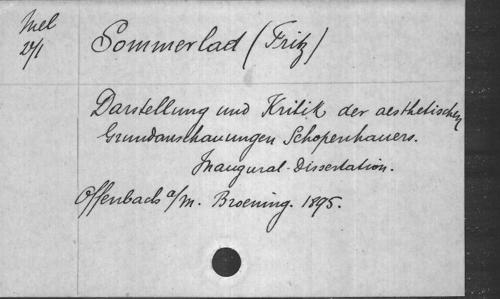 Mel
Sommerlad (Fritz)
Darstellung und Kritik der aesthetischen
Grundanschauungen Schopenhauers.
Inaugural-Dissertation.
Offenbach a/m. Broening. 1895.